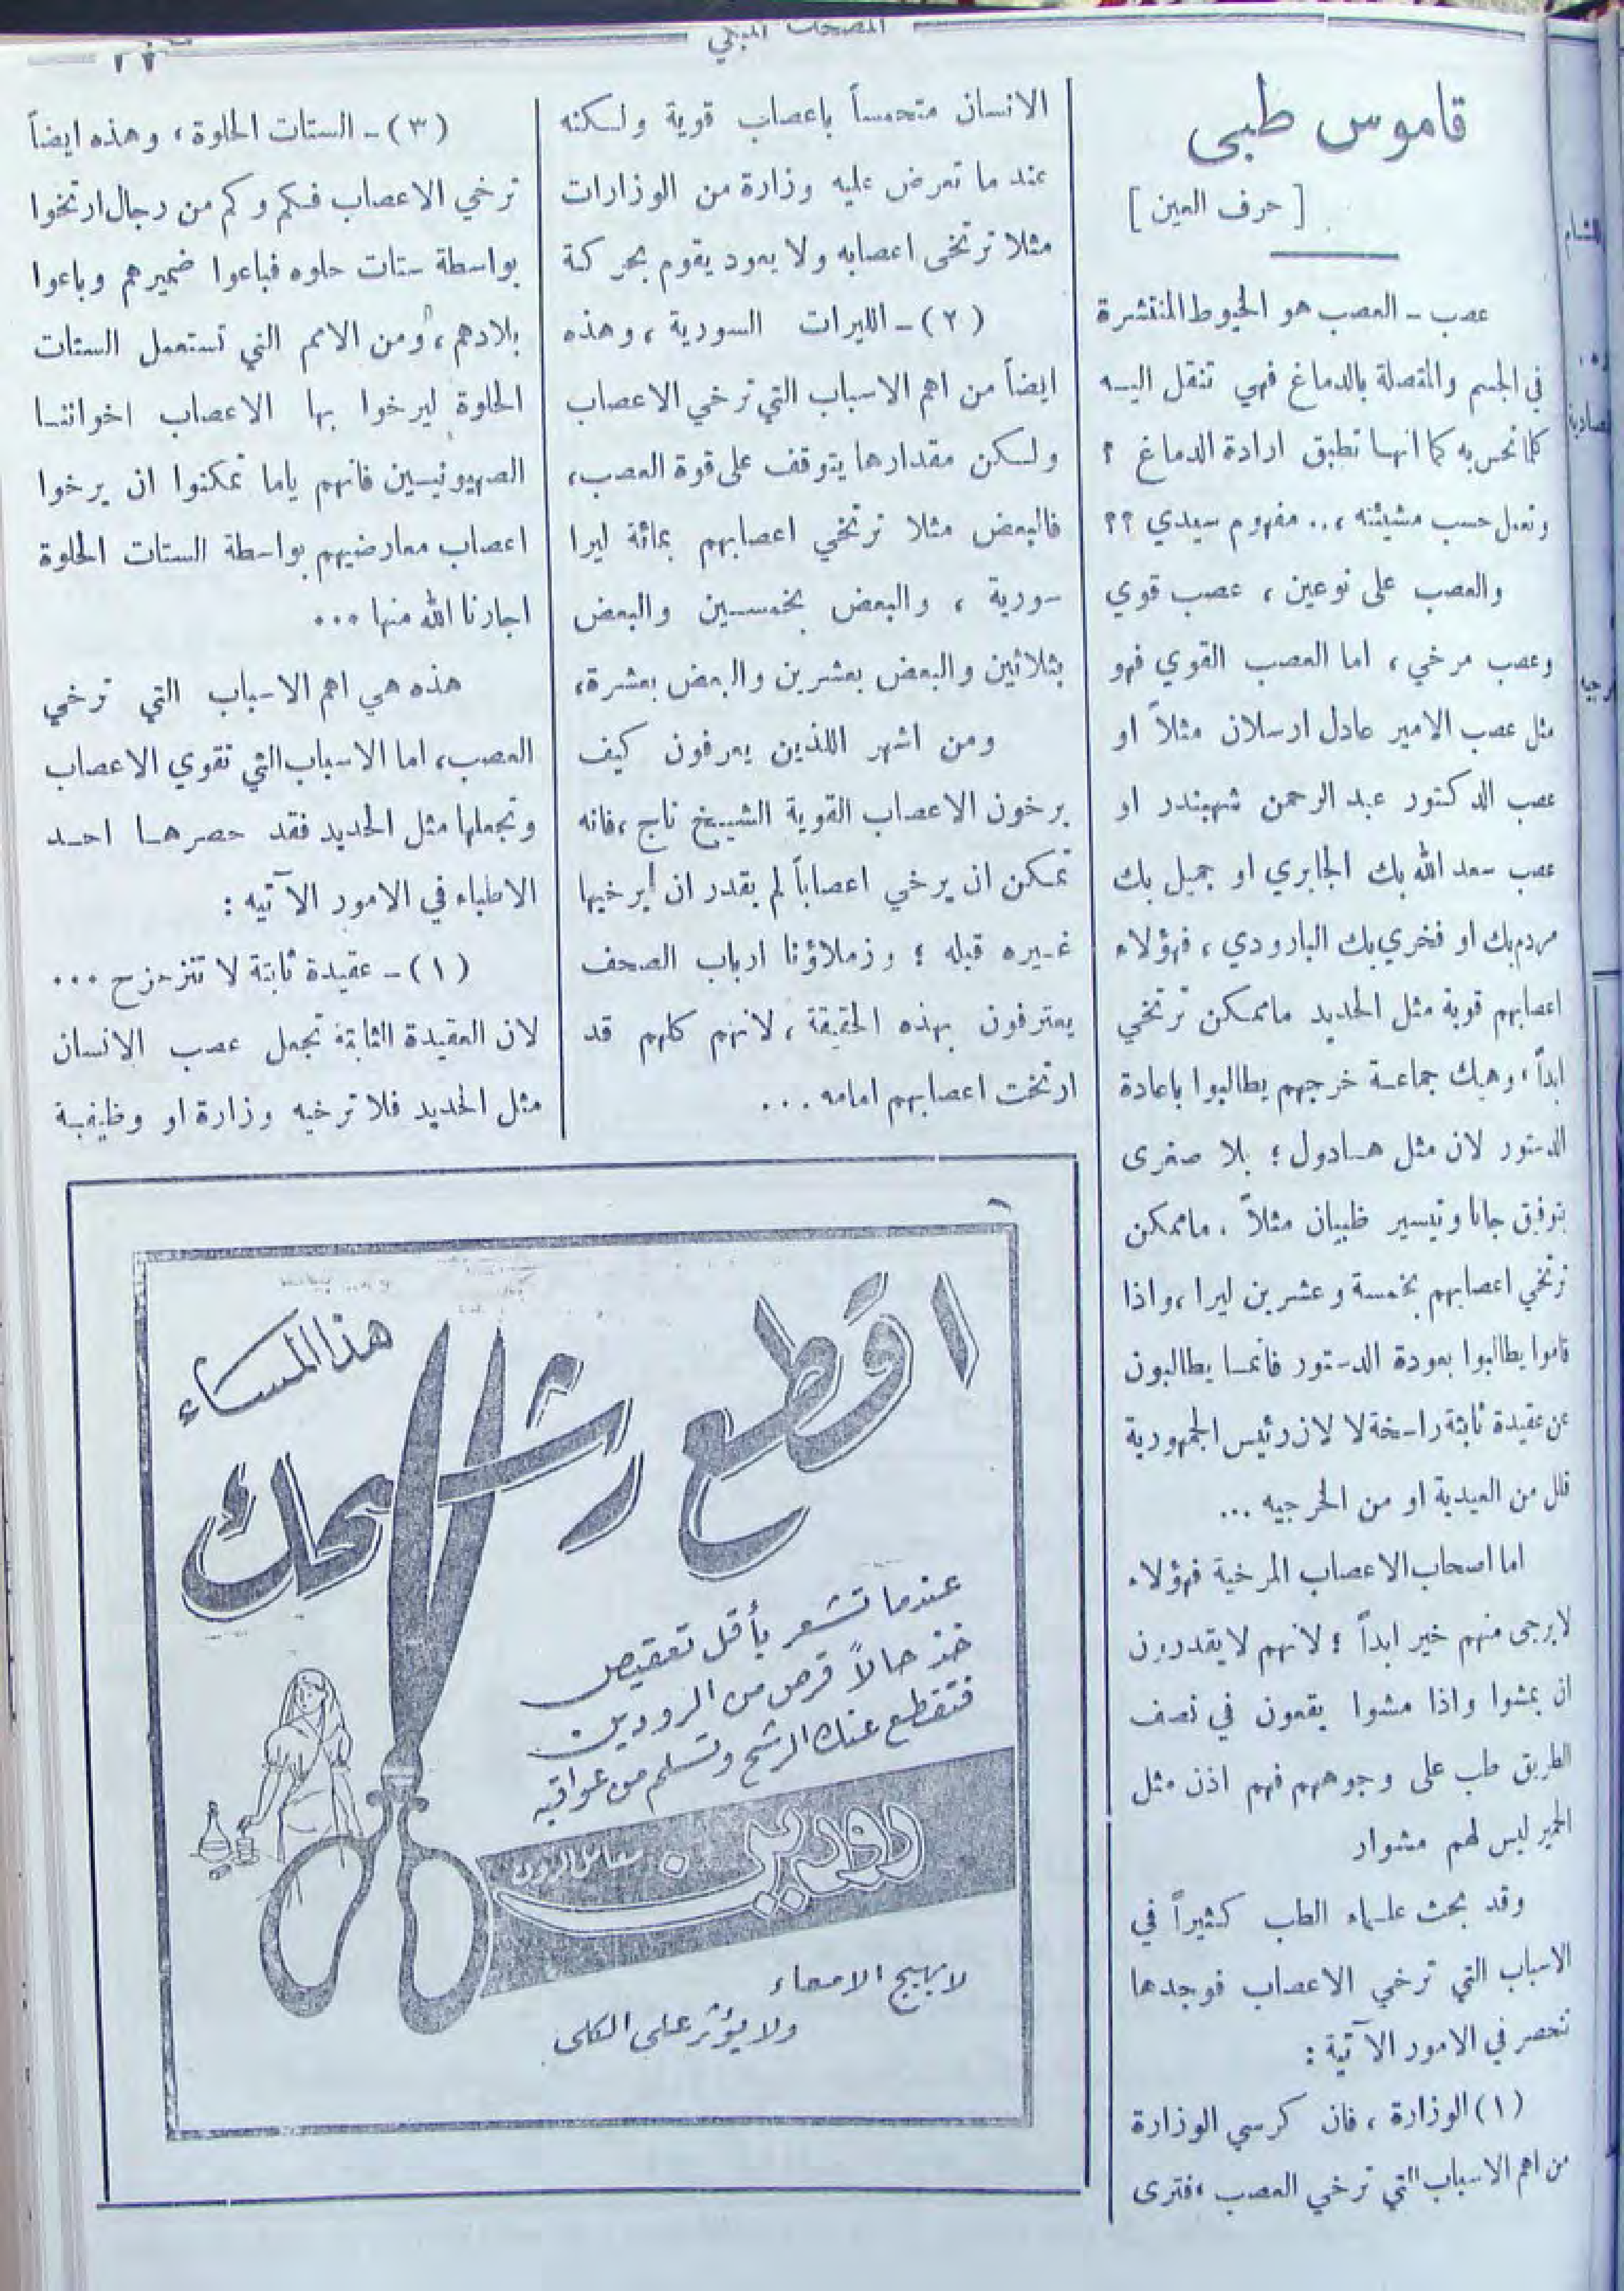 المضحك المبكي
قاموس طبي
[ حرف العين ]
عصب - العصب هو الخيوط المنتشرة
في الجسم والمتصلة بالدماغ فهي تنقل اليه
كلما نحس به كما انها تطبق ارادة الدماغ ؟
وتعمل حسب مشيئته ... مفهوم سيدي ؟؟
والعصب على نوعين ، عصب قوي
وعصب مرخي ، اما العصب القوي فهو
مثل عصب الامير عادل ارسلان مثلاً او
عصب الدكتور عبد الرحمن شهبندر او
عصب سعد الله بك الجابري او جميل بك
مردم بك او فخري بك البارودي ، فهؤلاء
اعصابهم قوية مثل الحديد ماممكن ترتخي
ابداً ، وهيك جماعة خرجهم يطالبوا باعادة
الدستور لان مثل هادول ؛ بلا صغرى
بتوفيق جانا وتيسير ظبيان مثلاً . ماممكن
ترتخي اعصابهم بخمسة وعشرين ليرا ، واذا
قاموا يطالبوا بعودة الدستور فانما يطالبون
عن عقيدة ثابتة راسخة لا لان رئيس الجمهورية
قلل من العيدية او من الخرجيه ...
اما اصحاب الاعصاب المرخية فهؤلاء
لا يرجى منهم خير ابداً ؛ لانهم لا يقدرون
ان يمشوا واذا مشوا يقعون في نصف
الطريق طب على وجوههم فهم اذن مثل
الحمير ليس لهم مشوار
وقد بحث علماء الطب كثيراً في
الاسباب التي ترخي الاعصاب فوجدها
تنحصر في الامور الآتية :
(١) الوزارة ، فان كرسي الوزارة
من اهم الاسباب التي ترخي العصب ، فترى
الانسان متحمساً باعصاب قوية ولكنه
عند ما تعرض عليه وزارة من الوزارات
مثلا ترتخى اعصابه ولا يعود يقوم بحركة
(٢) - الليرات السورية ، وهذه
ايضاً من اهم الاسباب التي ترخي الاعصاب
ولكن مقدارها يتوقف على قوة العصب ،
فالبعض مثلا ترتخي اعصابهم بمائة ليرا
سورية ، والبعض بخمسين والبعض
بثلاثين والبعض بعشرين والبعض بعشرة ،
ومن اشهر اللذين يعرفون كيف
يرخون الاعصاب القوية الشيخ تاج ، فانه
تمكن ان يرخي اعصاباً لم يقدر ان يرخيها
غيره قبله ؛ وزملاؤنا ارباب الصحف
يعترفون بهذه الحقيقة ، لانهم كلهم قد
ارتخت اعصابهم امامه ...
(٣) - الستات الحلوة ، وهذه ايضاً
ترخي الاعصاب فكم وكم من رجال ارتخوا
بواسطة ستات حلوه فباعوا ضميرهم وباعوا
بلادهم ، ومن الامم التي تستعمل الستات
الحلوة ليرخوا بها الاعصاب اخواننا
الصهيونيسين فانهم ياما تمكنوا ان يرخوا
اعصاب معارضيهم بواسطة الستات الحلوة
اجارنا الله منها ...
هذه هي اهم الاسباب التي ترخي
العصب ، اما الاسباب التي تقوي الاعصاب
وتجعلها مثل الحديد فقد حصرها احد
الاطباء في الامور الآتيه :
(١) - عقيدة ثابتة لا تتزحزح ...
لان العقيدة الثابتة تجعل عصب الانسان
مثل الحديد فلا ترخيه وزارة او وظيفة
اقطع
رشحك
هذا المساء
عندما تشعر بأقل تعقيص
خذ حالاً قرص من الرودين
فتقطع عنك الرشح وتسلم من عواقبه
رودين
معامل الرون
لا يهيج الامعاء
ولا يؤثر على الكلى